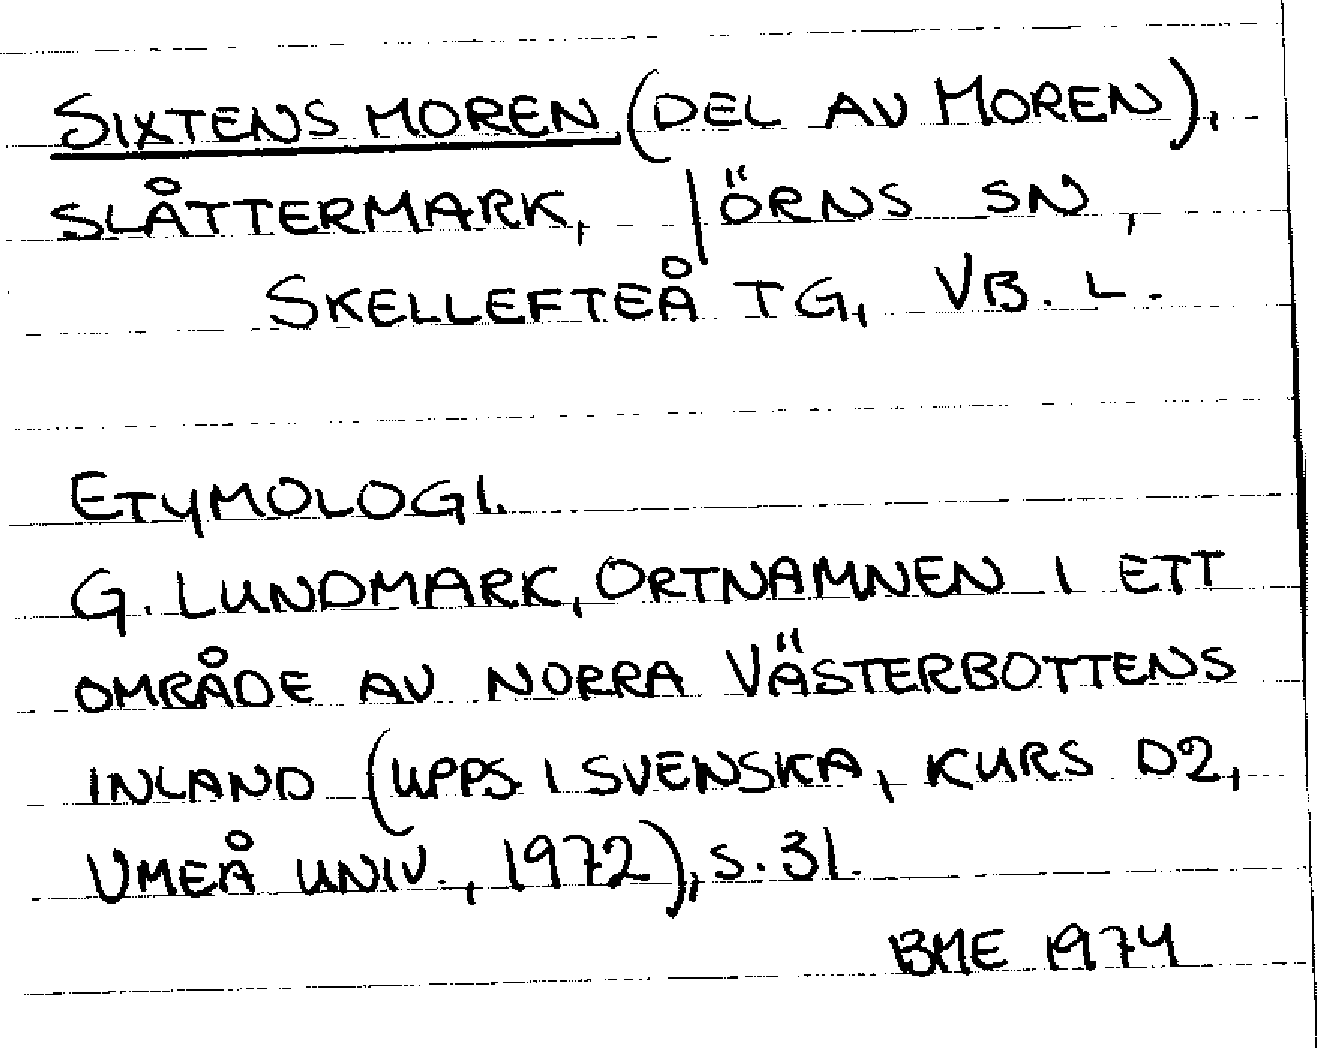 SIXTENS MOREN (DEL AV MOREN),
SLÅTTERMARK, JÖRNS SN,
SKELLEFTEÅ TG, VB. L.
ETYMOLOGI.
G. LUNDMARK, ORTNAMNEN I ETT
OMRÅDE AV NORRA VÄSTERBOTTENS
INLAND (UPPS I SVENSKA, KURS D2,
UMEÅ UNIV., 1972), S. 31.
BME 1974